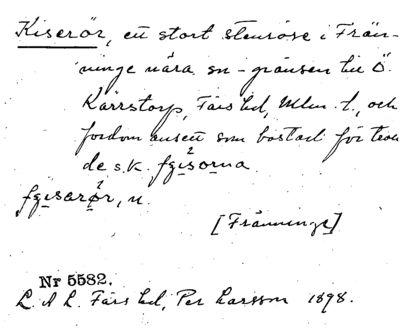 Kiserör, ett stort stenröse i Frän-
ninge nära sn-gränsen till Ö.
Kärrstorp, Färs hd, Mlm. l., och
fordom ansett som bostad för
de s.k. fgisorna.
fgisarør, n.
[Fränninge]
Nr 5582.
L. A. L. Färs hd, Per Larsson 1898.